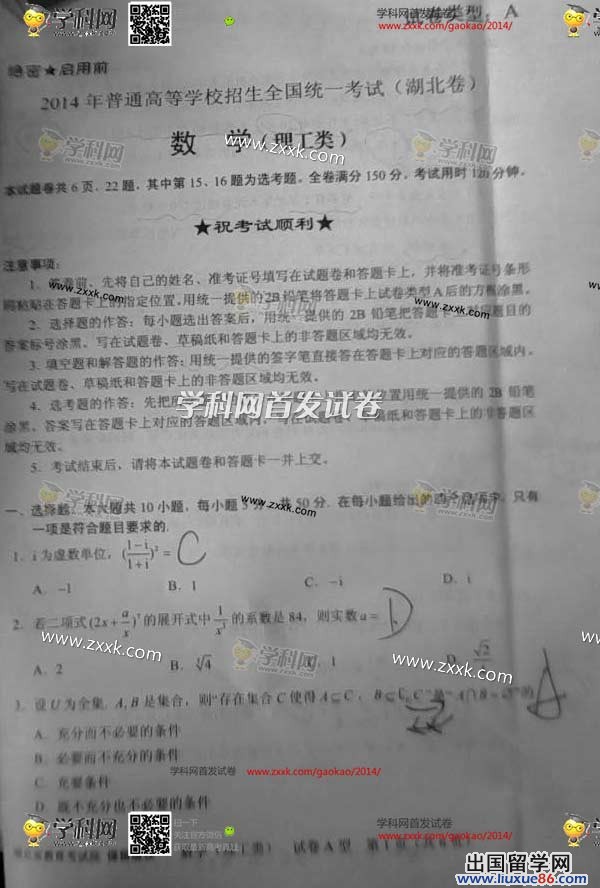 学科网
学科网首发试卷
www.zxxk.com/gaokao/2014/
试卷类型：A
绝密★启用前
2014年普通高等学校招生全国统一考试（湖北卷）
学科网
www.zxxk.com
数 学（理工类）
本试题卷共6页，22题，其中第15、16题为选考题。全卷满分150分，考试用时120分钟。
★祝考试顺利★
注意事项：
先将自己的姓名、准考证号填写在试题卷和答题卡上，并将准考证号条形
码粘贴在答题卡上的指定位置。用统一提供的2B铅笔将答题卡上试卷类型A后的方框涂黑。
www.zxxk.com
2. 选择题的作答：每小题选出答案后，用统一提供的 2B 铅笔把答题卡上对应题目的
答案标号涂黑。写在试题卷、草稿纸和答题卡上的非答题区域均无效。
3. 填空题和解答题的作答：用统一提供的签字笔直接答在答题卡上对应的答题区域内。
写在试题卷、草稿纸和答题卡上的非答题区域均无效。
4. 选考题的作答：先把
置用统一提供的 2B 铅笔
学科网首发试卷
涂黑。答案写在答题卡上对应的答题区域内，写在试题卷、草稿纸和答题卡上的非答题区
域均无效。
5. 考试结束后，请将本试题卷和答题卡一并上交。
学科网
www.zxxk.com
一、选择题：本大题共 10 小题，每小题 5 分，共 50 分. 在每小题给出的四个选项中，只有
一项是符合题目要求的.
1. i 为虚数单位，(\frac{1-i}{1+i})²= C
A. -1 B. 1 C. -i D. i
2. 若二项式(2x+\frac{a}{x})⁷的展开式中\frac{1}{x³}的系数是 84，则实数a= D
www.zxxk.com
学科网
A. 2 B. ⁵√4 C. 1 D. \frac{√2}{4}
3. 设U为全集. A, B是集合，则“存在集合C使得A⊆C，B⊆∁_U C”是“A∩B=∅”的 A
A. 充分而不必要的条件
B. 必要而不充分的条件
C. 充要条件
D. 既不充分也不必要的条件
学科网首发试卷
www.zxxk.com/gaokao/2014/
学科网
扫一扫
关注官方微信
获取最新高考真题
试卷A型
出国留学网
www.liuxue86.com